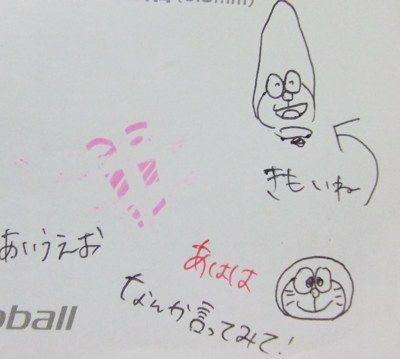 (0.5mm)
きもいね
あいうえお
あはは
なんか言ってみて!
oball